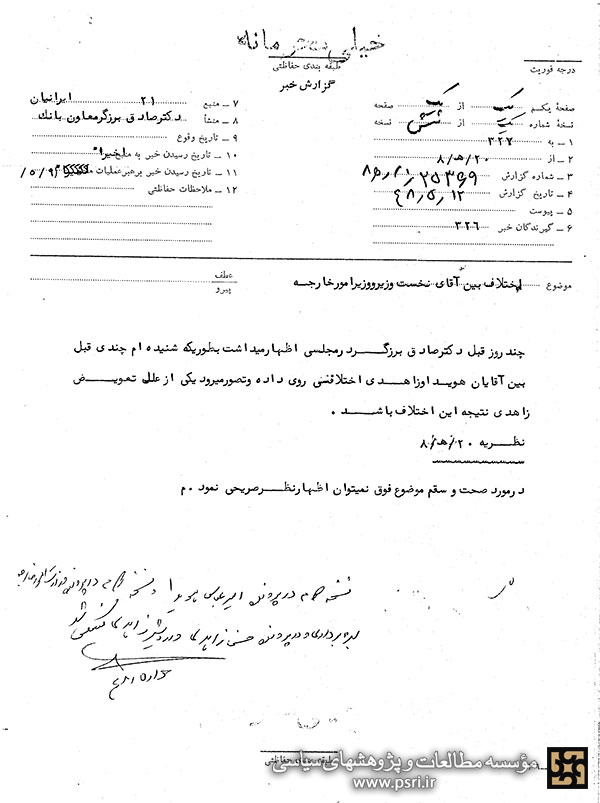 خیلی محرمانه
طبقه بندی حفاظتی
گزارش خبر
درجه فوریت
صفحه یکم یک از یک صفحه
نسخه شماره یک از شش نسخه
۱ ـ به ۳۲۲
۲ ـ از ۲۰/هـ/۸
۳ ـ شماره گزارش ۲۵۳۶۹
۴ ـ تاریخ گزارش ۴۸٫۵٫۱۲
۵ ـ پیوست
۶ ـ گیرندگان خبر ۳۲۶
۷ ـ منبع ۲۱ ایرانیان
۸ ـ منشأ دکتر صادق برزگر معاون بانک
۹ ـ تاریخ وقوع
۱۰ ـ تاریخ رسیدن خبر به منبع اخیرا"
۱۱ ـ تاریخ رسیدن خبر برهبر عملیات ۹/۵/
۱۲ ـ ملاحظات حفاظتی
موضوع اختلاف بین آقای نخست وزیر و وزیر امور خارجه
عطف
پیرو
چند روز قبل دکتر صادق برزگر در مجلسی اظهار میداشت بطوریکه شنیده ام چندی قبل
بین آقایان هویدا و زاهدی اختلافی روی داده و تصور میرود یکی از علل تعویض
زاهدی نتیجه این اختلاف باشد .
نظریه ۲۰/هـ/۸
در مورد صحت و سقم موضوع فوق نمیتوان اظهار نظر صریحی نمود . م
نسخه دوم در پرونده امیرعباس هویدا و نسخه در پرونده
در پرونده زاهدی شد
طبقه بندی حفاظتی
مؤسسه مطالعات و پژوهشهای سیاسی
www.psri.ir